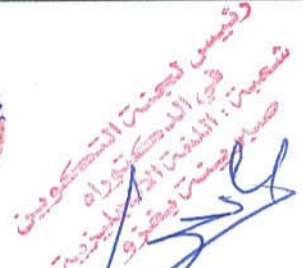 رئيس لجنة التكوين
في الدكتوراه
شعبة: اللغة الانجليزية